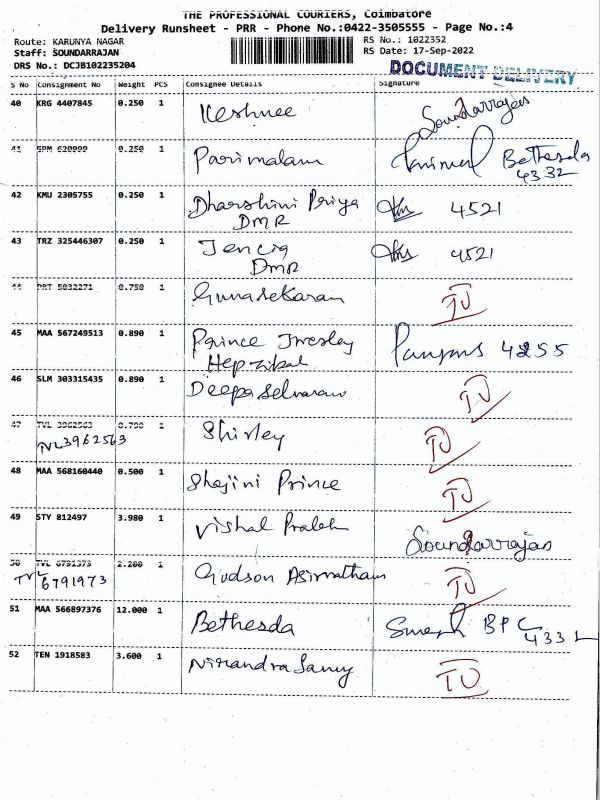 THE PROFESSIONAL COURIERS, Coimbatore
Delivery Runsheet - PRR - Phone No.:0422-3505555 - Page No.:4
Route: KARUNYA NAGAR
RS No.: 1022352
Staff: SOUNDARRAJAN
RS Date: 17-Sep-2022
DRS No.: DCJB102235204
DOCUMENT DELIVERY
S No Consignment No Weight PCS Consignee Details Signature
40 KRG 4407845 0.250 1 Keshnee Soundarrajan
41 GPM 620999 0.250 1 Parimalam Bethesda
4332
42 KMU 2305755 0.250 1 Dharshini Priya 4521
DMR
43 TRZ 325446307 0.250 1 Jencia 4521
DMR
44 PRT 5032271 0.750 1 Gunasekaran
45 MAA 567249513 0.890 1 Prince 4255
Hepzibah
46 SLM 303315435 0.890 1 Deepa Selvaraw
47 TVL 3962563 0.700 1 Shirley
TVL3962563
48 MAA 568160440 0.500 1 Shejini Prince
49 STY 812497 3.980 1 Vishal Soundarrajan
50 TVL 6791973 2.200 1 Gudson
TVL 6791973
51 MAA 566897376 12.000 1 Bethesda BPC
4331
52 TEN 1918583 3.600 1 Nirandra Samy